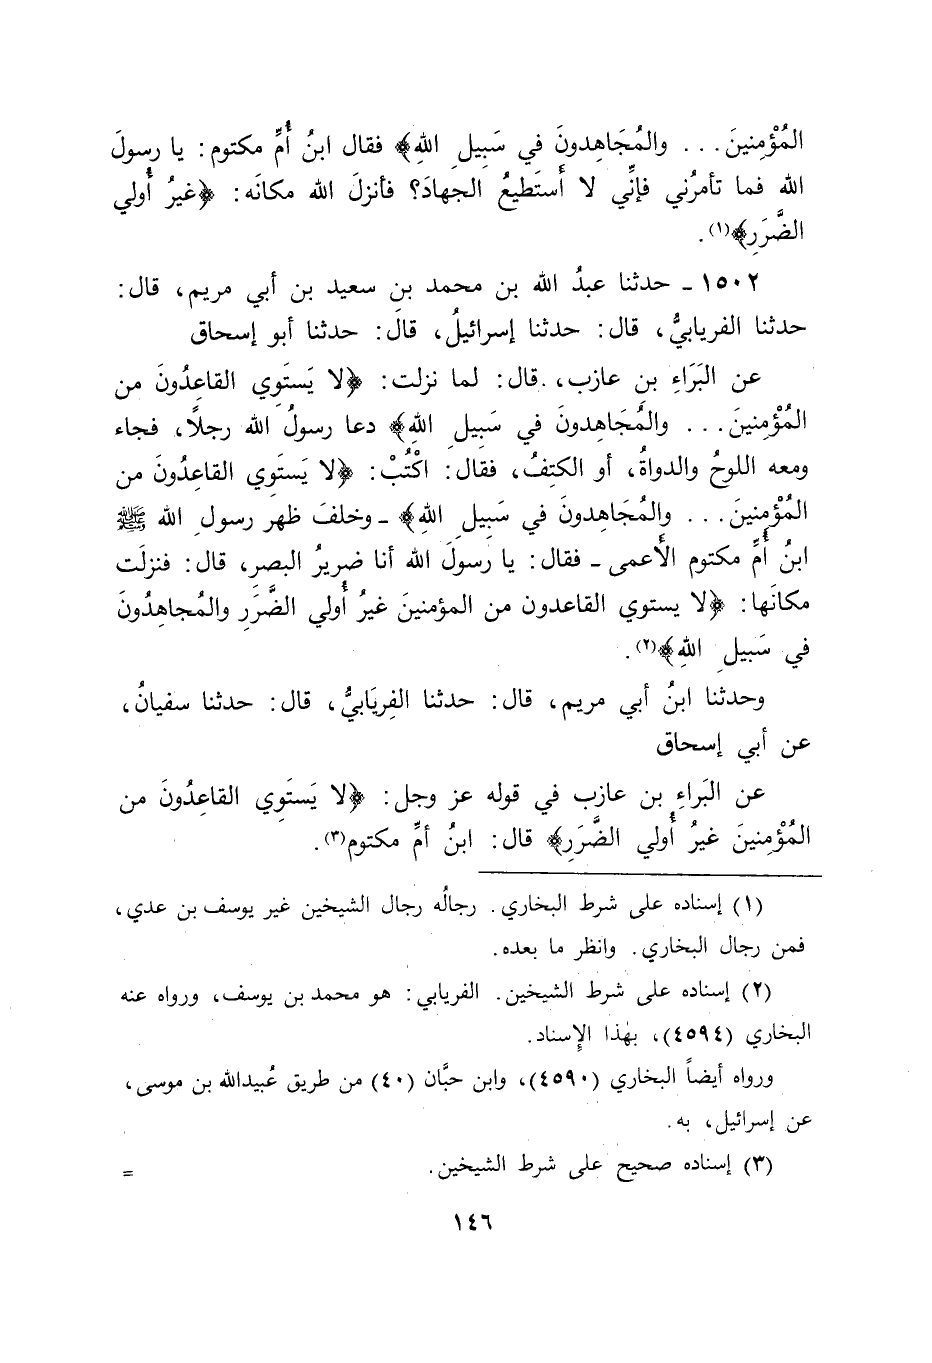 المُؤْمِنينَ... والمُجَاهِدونَ في سَبِيلِ اللهِ﴾ فقال ابنُ أُمِّ مكتوم: يا رسولَ
الله فما تأمرُني فإنِّي لا أَستَطيعُ الجهادَ؟ فأنزلَ الله مكانَه: ﴿غيرُ أُولي
الضَّرَرِ﴾(١).
١٥٠٢ ـ حدثنا عبدُ الله بن محمد بن سعيد بن أبي مريم، قال:
حدثنا الفريابيُّ، قال: حدثنا إسرائيلُ، قال: حدثنا أبو إسحاق
عن البَرَاءِ بن عازب، قال: لما نزلت: ﴿لا يَستَوِي القاعِدُونَ من
المُؤْمِنينَ... والمُجَاهِدونَ في سَبِيلِ اللهِ﴾ دعا رسولُ الله رجلاً، فجاء
ومعه اللوحُ والدواةُ، أو الكتِفُ، فقال: اكْتُبْ: ﴿لا يَستَوِي القاعِدُونَ من
المُؤْمِنينَ... والمُجَاهِدونَ في سَبِيلِ اللهِ﴾ ـ وخلفَ ظهر رسولِ الله ﷺ
ابنُ أُمِّ مكتوم الأَعمى ـ فقال: يا رسولَ الله أنا ضريرُ البصرِ، قال: فنزلَت
مكانَها: ﴿لا يستوي القاعدون من المؤمنينَ غيرُ أُولي الضَّرَرِ والمُجاهِدُونَ
في سَبيلِ اللهِ﴾(٢).
وحدثنا ابنُ أبي مريم، قال: حدثنا الفِريَابيُّ، قال: حدثنا سفيانُ،
عن أبي إسحاق
عن البَراءِ بن عازب في قوله عز وجل: ﴿لا يَستَوِي القاعِدُونَ من
المُؤْمِنينَ غيرُ أُولي الضَّرَرِ﴾ قال: ابنُ أمِّ مكتوم(٣).
(١) إسناده على شرط البخاري. رجالُه رجال الشيخين غير يوسف بن عدي،
فمن رجال البخاري. وانظر ما بعده.
(٢) إسناده على شرط الشيخين. الفريابي: هو محمد بن يوسف، ورواه عنه
البخاري (٤٥٩٤)، بهٰذا الإِسناد.
ورواه أيضاً البخاري (٤٥٩٠)، وابن حبَّان (٤٠) من طريق عُبيدالله بن موسى،
عن إسرائيل، به.
(٣) إسناده صحيح على شرط الشيخين. =
١٤٦